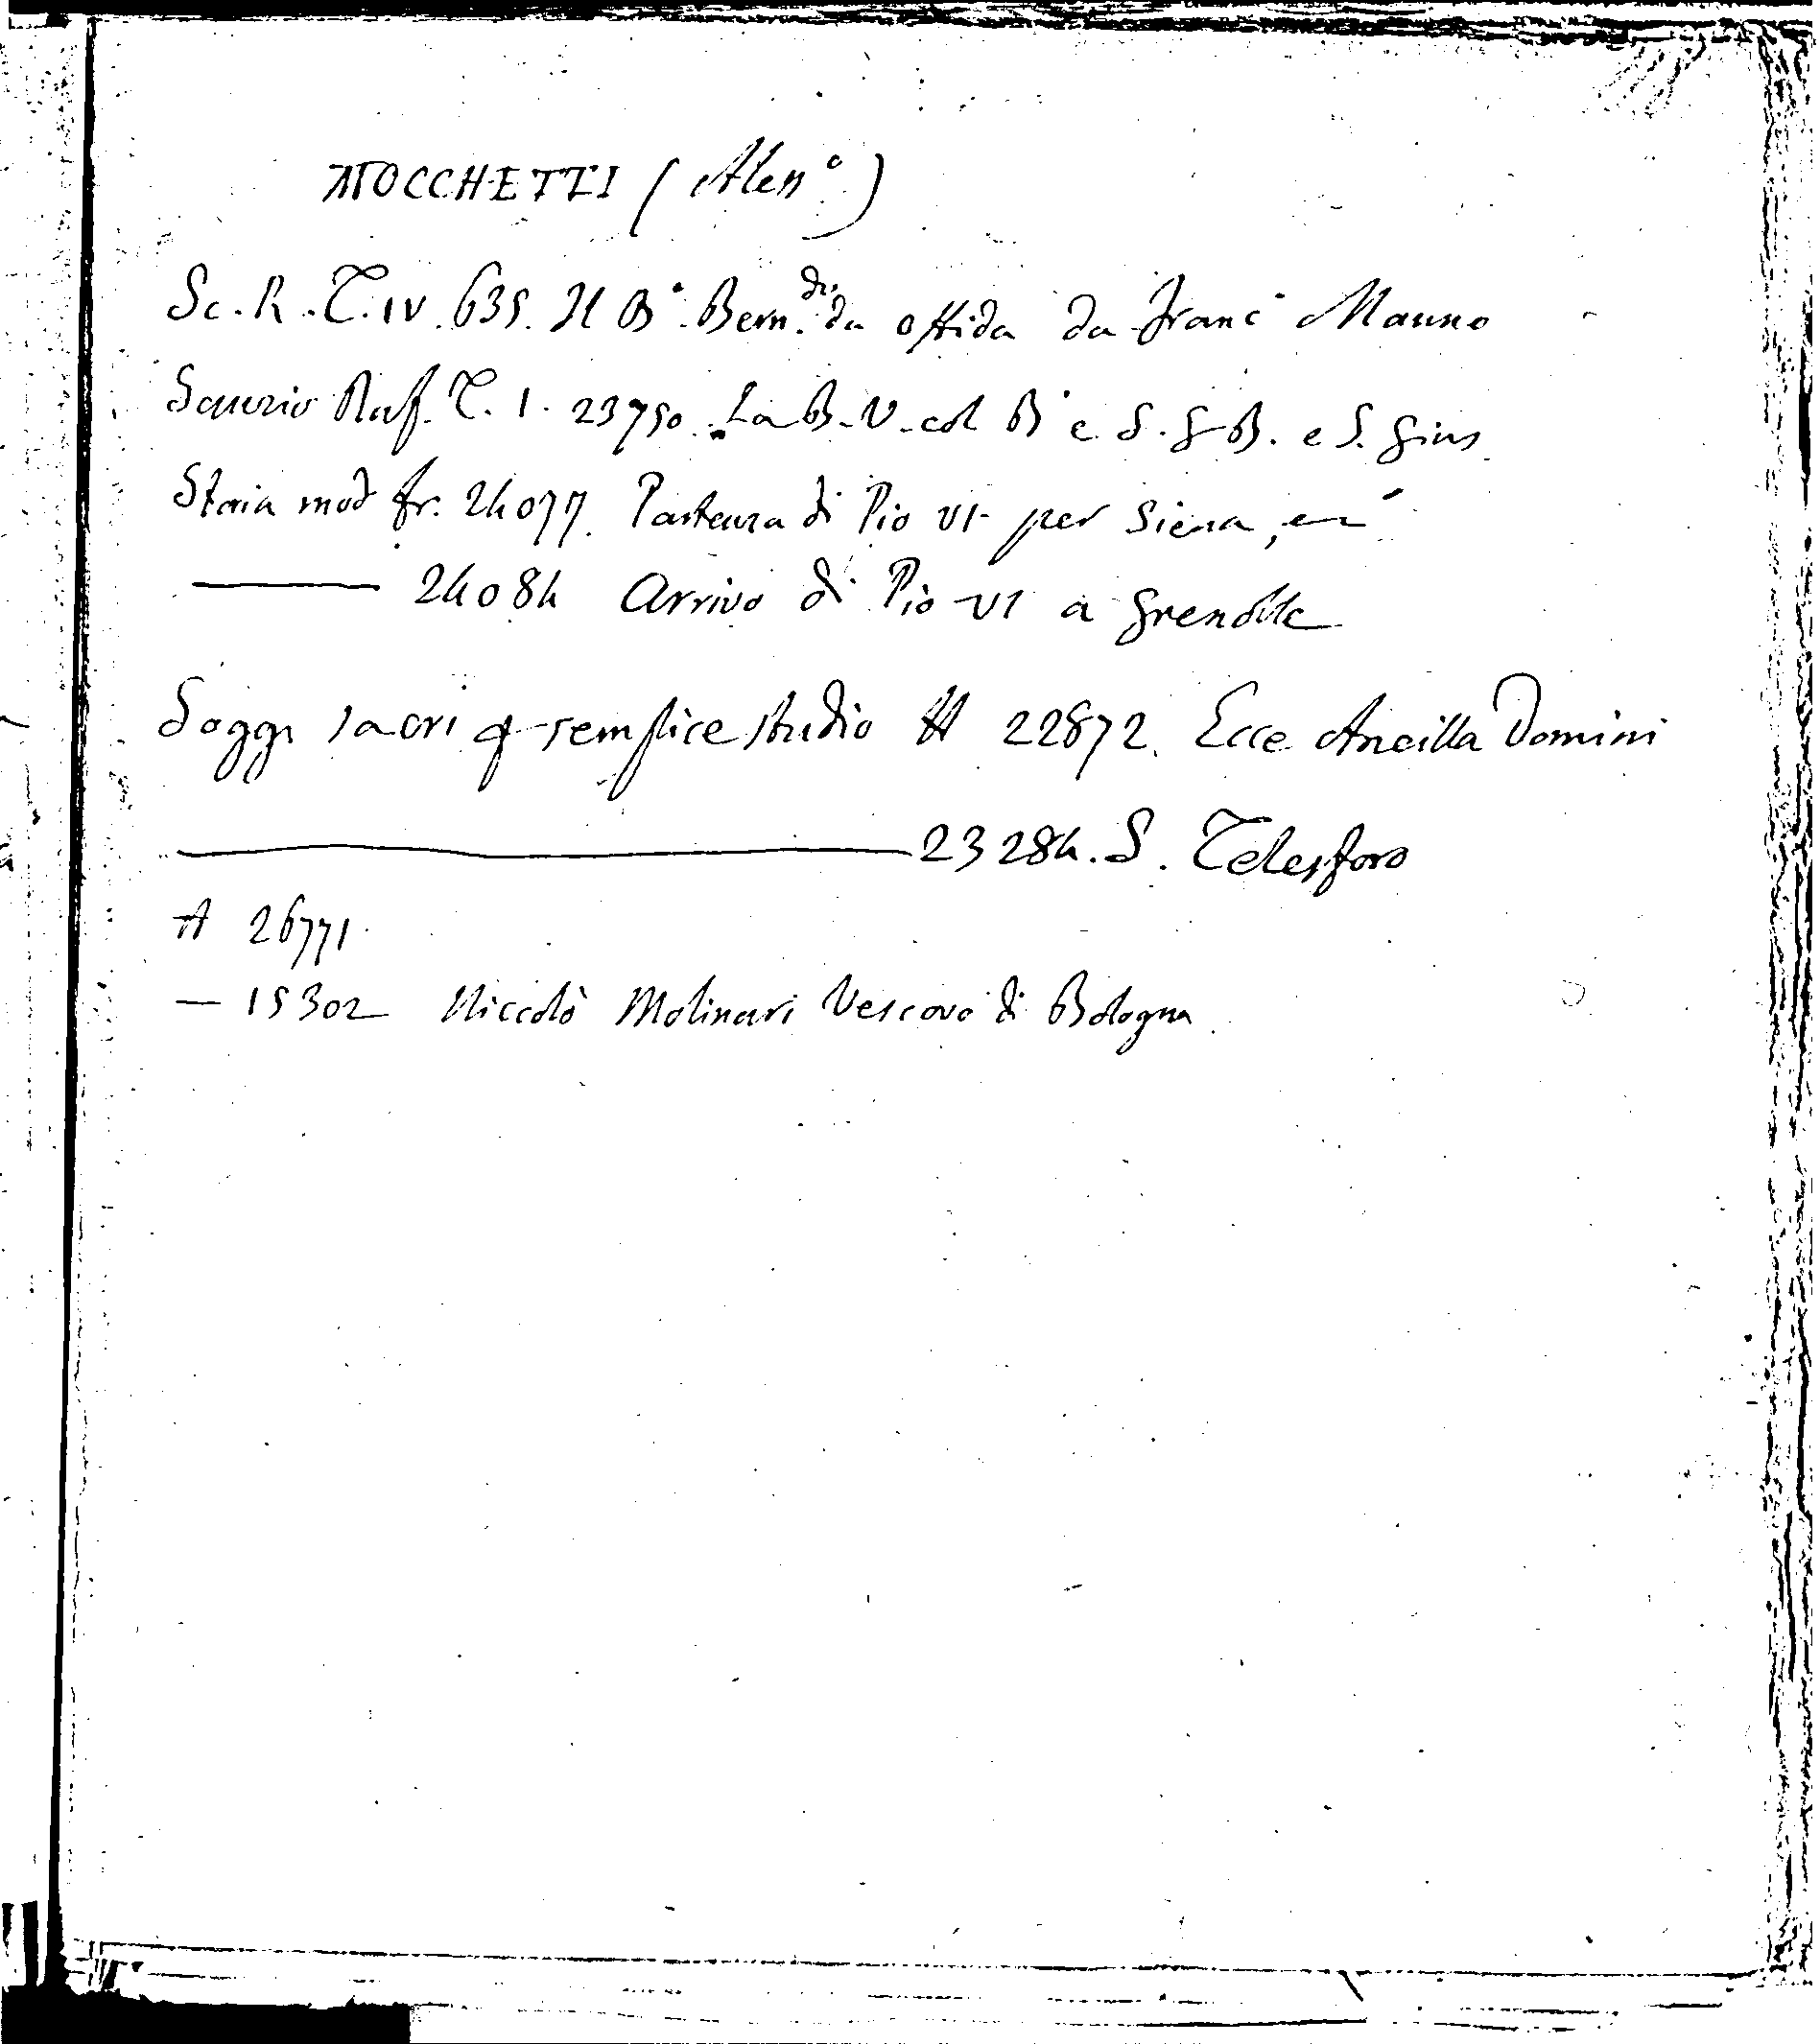 MOCCHETTI (Aless°)
Sc. R. T. IV. 635. Il B°. Bern.do da Offida da Franc° Manno
Sanzio Raf. T. 1. 23750. La B. V. col B° e S. G B. e S. Gius
Storia mod fr. 24077. Partenza di Pio VI per Siena,
—— 24084 Arrivo di Pio VI a Grenoble
Sogg. sacri p semplice studio H 22872. Ecce Ancilla Domini
—— 23284. S. Telesforo
A 26771
— 15302 Niccolò Molinari Vescovo di Bologna